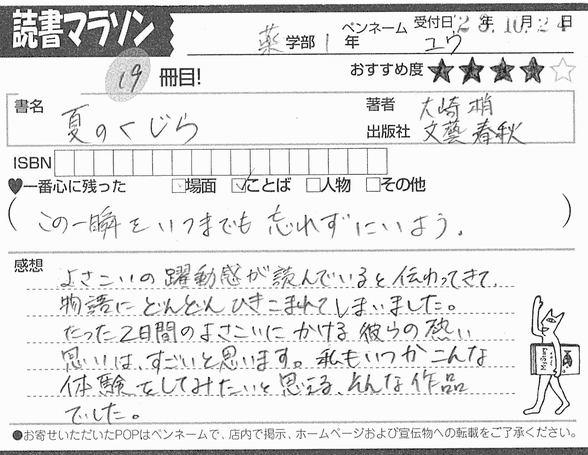 読書マラソン
薬学部1年 ペンネーム ユウ 受付日'23年10月24日
19冊目! おすすめ度 ★★★★☆
書名 夏のくじら 著者 大崎梢
出版社 文藝春秋
ISBN
♥一番心に残った □場面 ☑ことば □人物 □その他
(この一瞬をいつまでも忘れずにいよう。)
感想
よさこいの躍動感が読んでいると伝わってきて、
物語にどんどんひきこまれてしまいました。
たった2日間のよさこいにかける彼らの熱い
思いは、すごいと思います。私もいつかこんな
体験をしてみたいと思える、そんな作品
でした。
●お寄せいただいたPOPはペンネームで、店内で掲示、ホームページおよび宣伝物への転載をご了承ください。